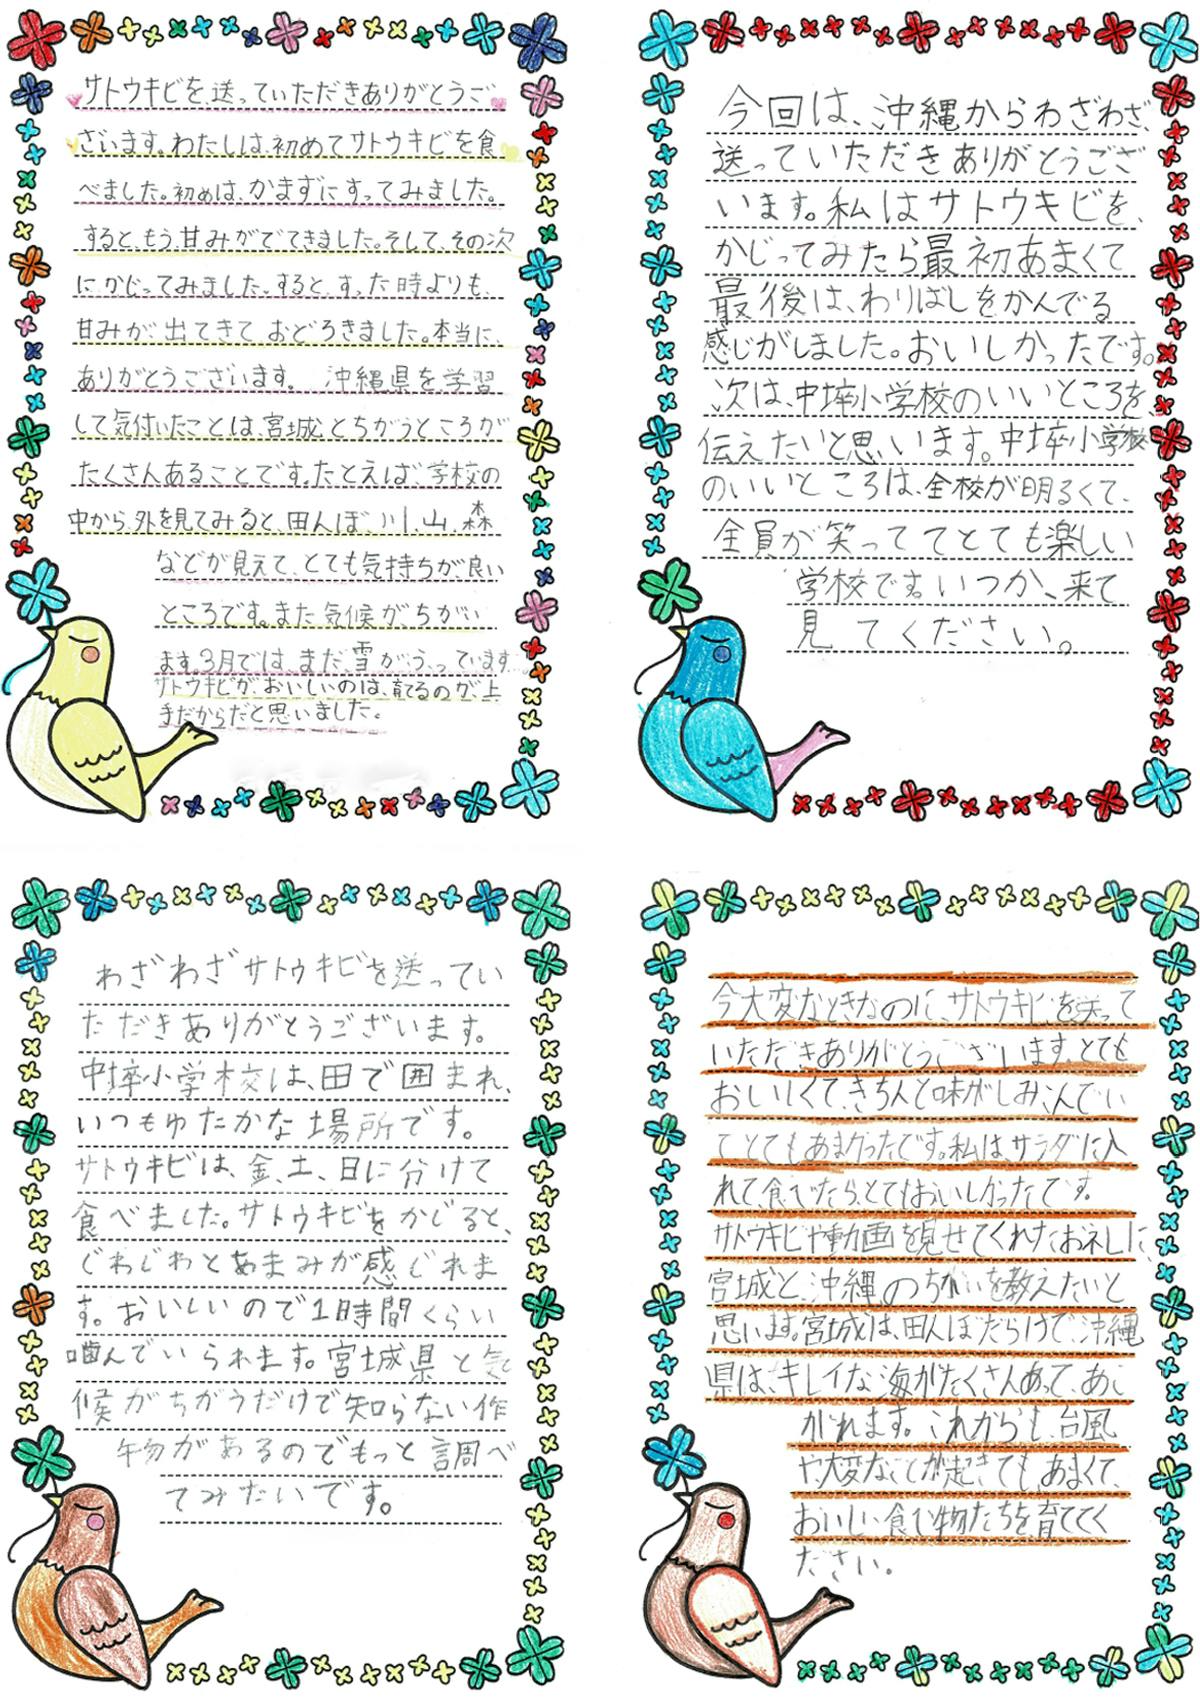 サトウキビを、送っていただきありがとうご
ざいます。わたしは、初めてサトウキビを食
べました。初めは、かまずにすってみました。
すると、もう、甘みがでてきました。そして、その次
にかじってみました。すると、すった時よりも、
甘みが、出てきて、おどろきました。本当に、
ありがとうございます。 沖縄県を学習
して気付いたことは、宮城とちがうところが
たくさんあることです。たとえば、学校の
中から、外を見てみると、田んぼ、川、山、森
などが見えて、とても気持ちが、良い
ところです。また気候が、ちがい
ます。3月では、まだ、雪がふっています。
サトウキビが、おいしいのは、育てるのが上
手だからだと思いました。
今回は、沖縄からわざわざ、
送っていただきありがとうござ
います。私はサトウキビを、
かじってみたら最初あまくて
最後は、わりばしをかんでる
感じがしました。おいしかったです。
次は、中埣小学校のいいところを、
伝えたいと思います。中埣小学校
のいいところは、全校が明るくて、
全員が笑っててとても楽しい
学校です。いつか、来て
見てください。
わざわざサトウキビを送ってい
ただきありがとうございます。
中埣小学校は、田で囲まれ、
いつもゆたかな場所です。
サトウキビは、金、土、日に分けて
食べました。サトウキビをかじると、
じわじわとあまみが感じれま
す。おいしいので1時間くらい
噛んでいられます。宮城県と気
候がちがうだけで知らない作
物があるのでもっと調べ
てみたいです。
今大変なときなのに、サトウキビを送って
いただきありがとうございます。とても
おいしくて、きちんと味がしみこんでい
てとてもあまかったです。私は、サラダに入
れて、食べたら、とてもおいしかったです。
サトウキビや動画を見せてくれたお礼に、
宮城と、沖縄のちがいを教えたいと
思います。宮城は、田んぼだらけで、沖縄
県は、キレイな海がたくさんあって、あこ
がれます。これからも、台風
や、大変なことが起きても、あまくて、
おいしい食べ物たちを育ててく
ださい。